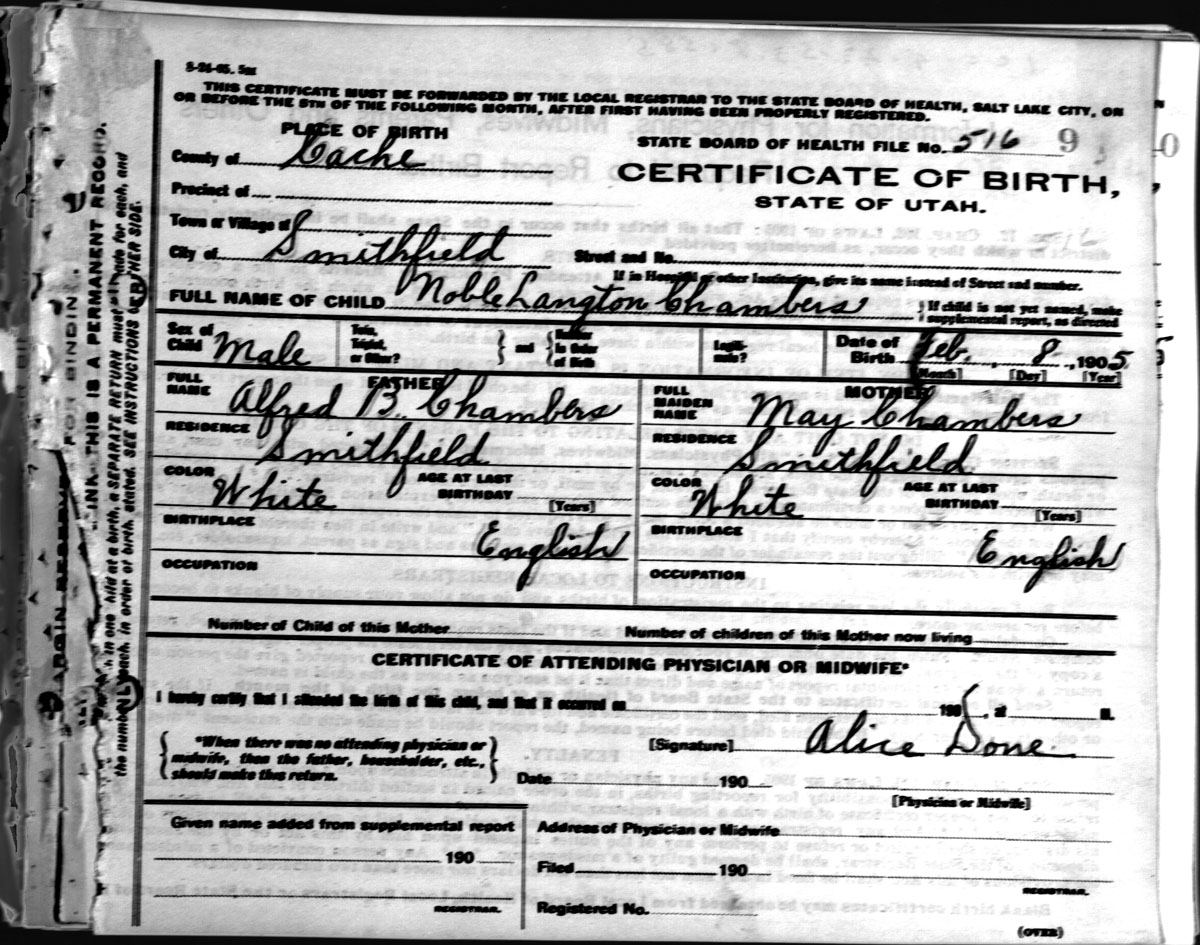 8-24-05. 5M
THIS CERTIFICATE MUST BE FORWARDED BY THE LOCAL REGISTRAR TO THE STATE BOARD OF HEALTH, SALT LAKE CITY, ON
OR BEFORE THE 5TH OF THE FOLLOWING MONTH, AFTER FIRST HAVING BEEN PROPERLY REGISTERED.
PLACE OF BIRTH
County of Cache
Precinct of
Town or Village of
City of Smithfield
STATE BOARD OF HEALTH FILE No. 516 9
CERTIFICATE OF BIRTH,
STATE OF UTAH.
Street and No.
If in Hospital or other Institution, give its name instead of Street and number.
FULL NAME OF CHILD Noble Langton Chambers
If child is not yet named, make
supplemental report, as directed
Sex of Child Male
Twin, Triplet, or Other?
and
Number in Order of Birth
Legitimate?
Date of Birth Feb. 8, 1905
[Month] [Day] [Year]
FATHER
FULL NAME Alfred B. Chambers
RESIDENCE Smithfield
COLOR White
AGE AT LAST BIRTHDAY
[Years]
BIRTHPLACE English
OCCUPATION
MOTHER
FULL MAIDEN NAME May Chambers
RESIDENCE Smithfield
COLOR White
AGE AT LAST BIRTHDAY
[Years]
BIRTHPLACE English
OCCUPATION
Number of Child of this Mother
Number of children of this Mother now living
CERTIFICATE OF ATTENDING PHYSICIAN OR MIDWIFE*
I hereby certify that I attended the birth of this child, and that it occurred on 190 , at M.
*When there was no attending physician or
midwife, then the father, householder, etc.,
should make this return.
[Signature] Alice Done
Date 190
[Physician or Midwife]
Given name added from supplemental report
190
REGISTRAR.
Address of Physician or Midwife
Filed 190
REGISTRAR.
Registered No.
(OVER)
INK THIS IS A PERMANENT RECORD.